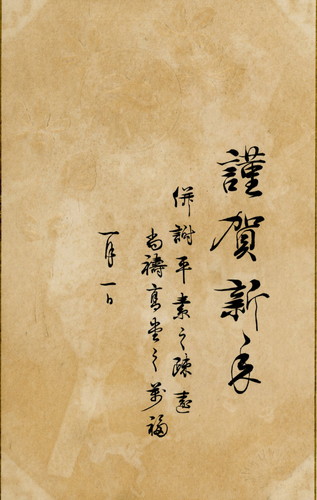 謹賀新年
併謝平素之疎遠
尚禱高堂之萬福
一月一日